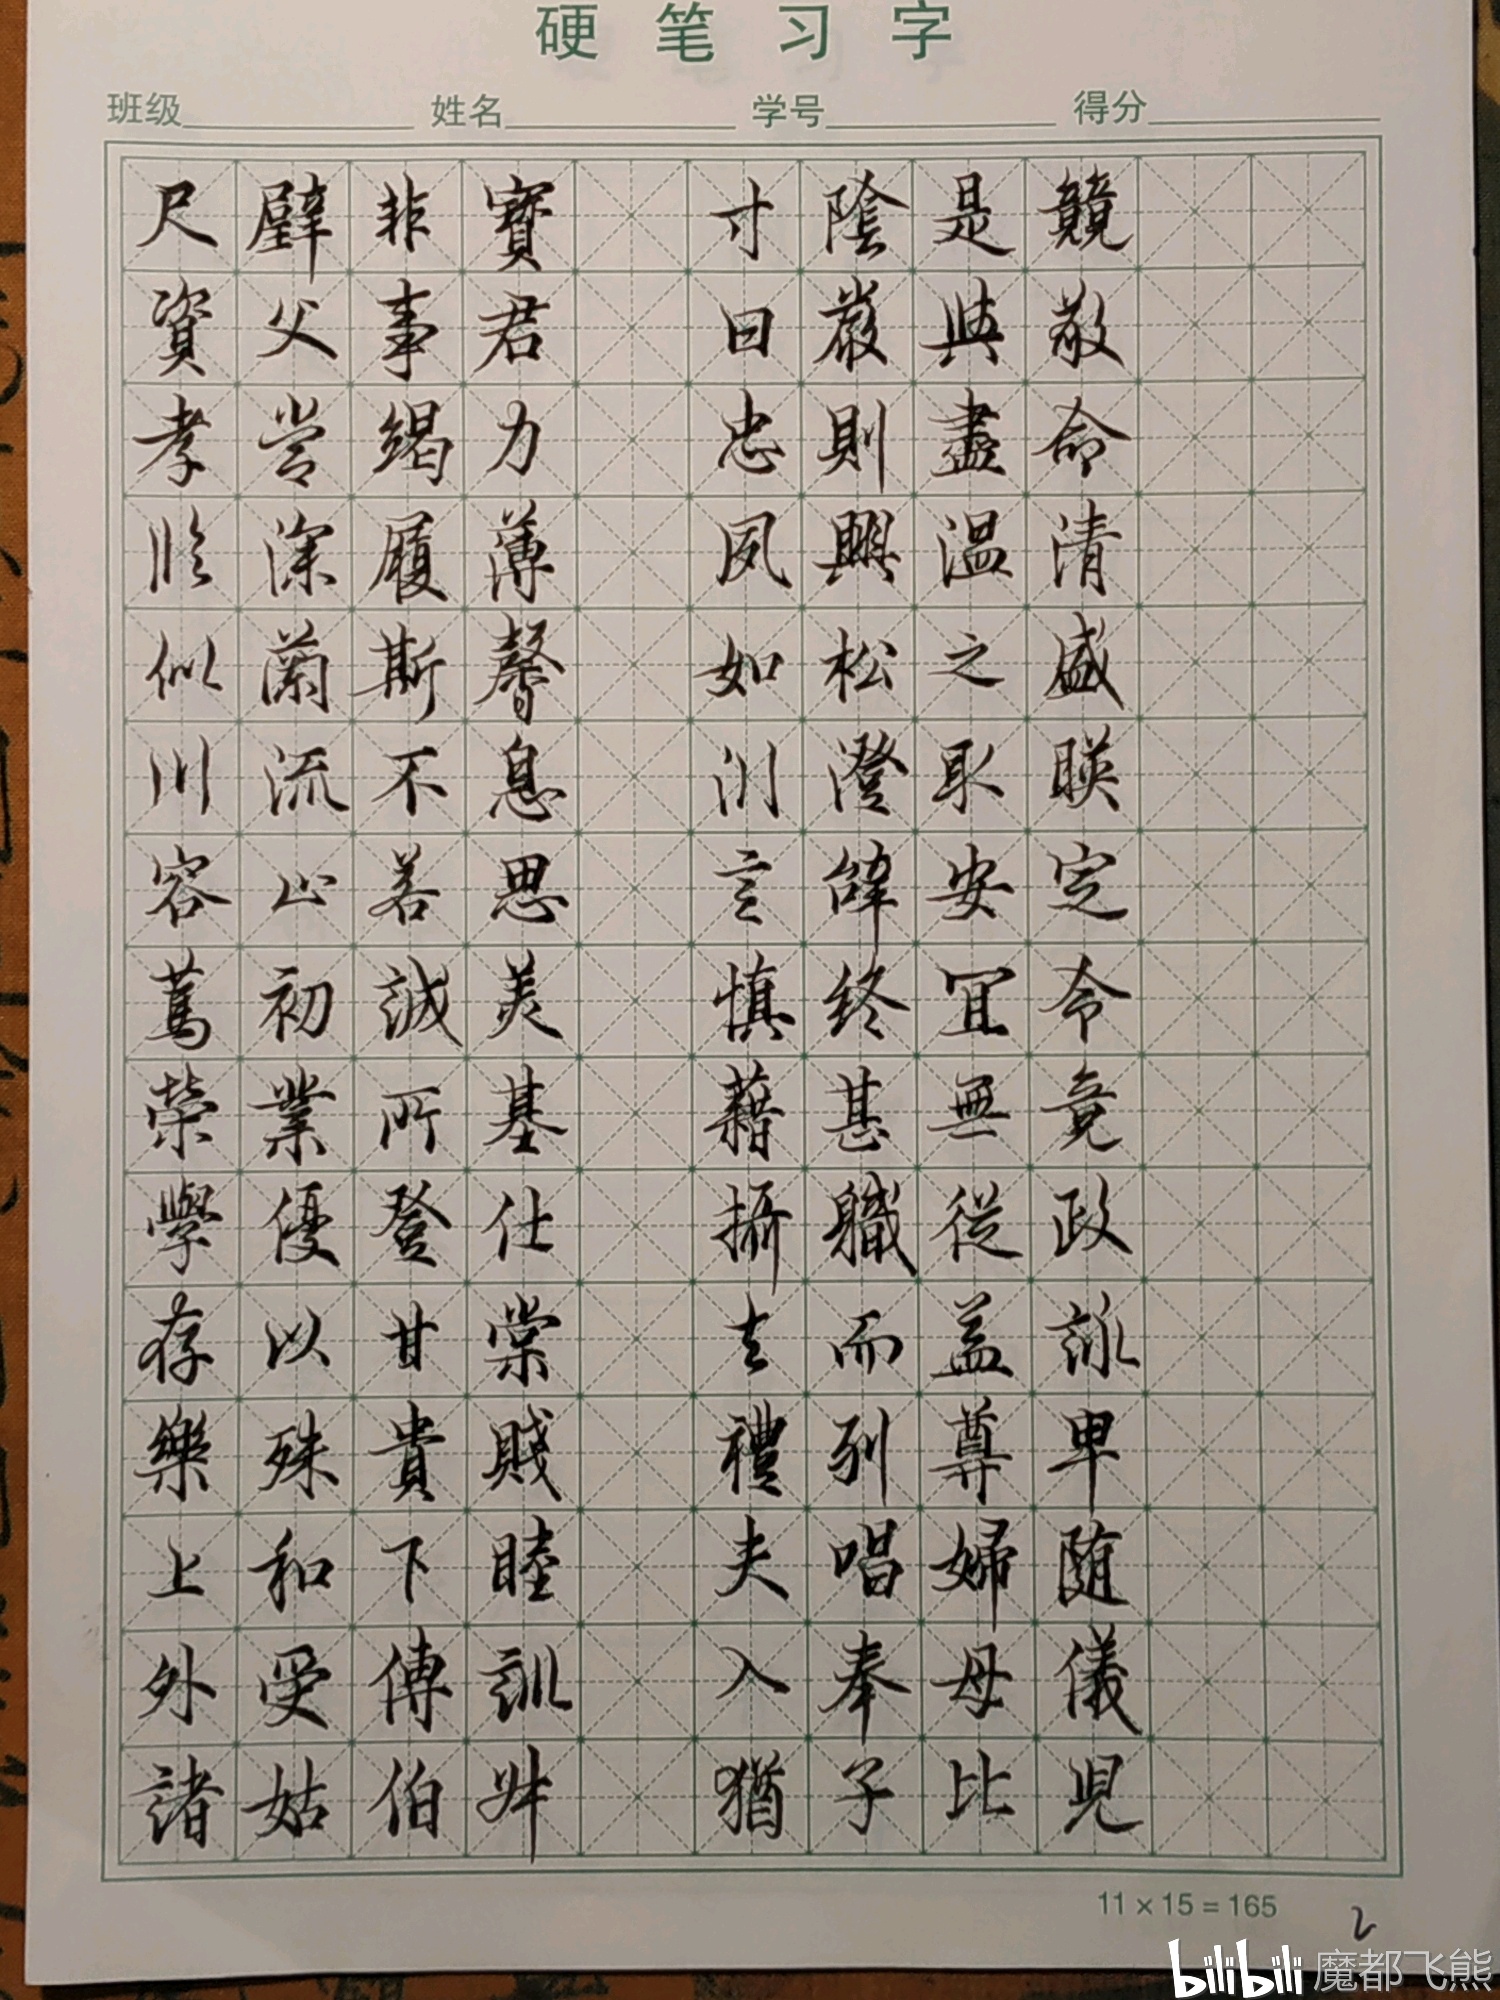 硬笔习字
班级 姓名 学号 得分
尺璧非寶 寸陰是競
資父事君 曰嚴與敬
孝當竭力 忠則盡命
臨深履薄 夙興溫清
似蘭斯馨 如松之盛
川流不息 渊澄取暎
容止若思 言辭安定
篤初誠美 慎終宜令
榮業所基 藉甚無竟
學優登仕 攝職從政
存以甘棠 去而益詠
樂殊貴賤 禮別尊卑
上和下睦 夫唱婦随
外受傅訓 入奉母儀
諸姑伯叔 猶子比兒
11×15=165
2
bilibili 魔都飞熊